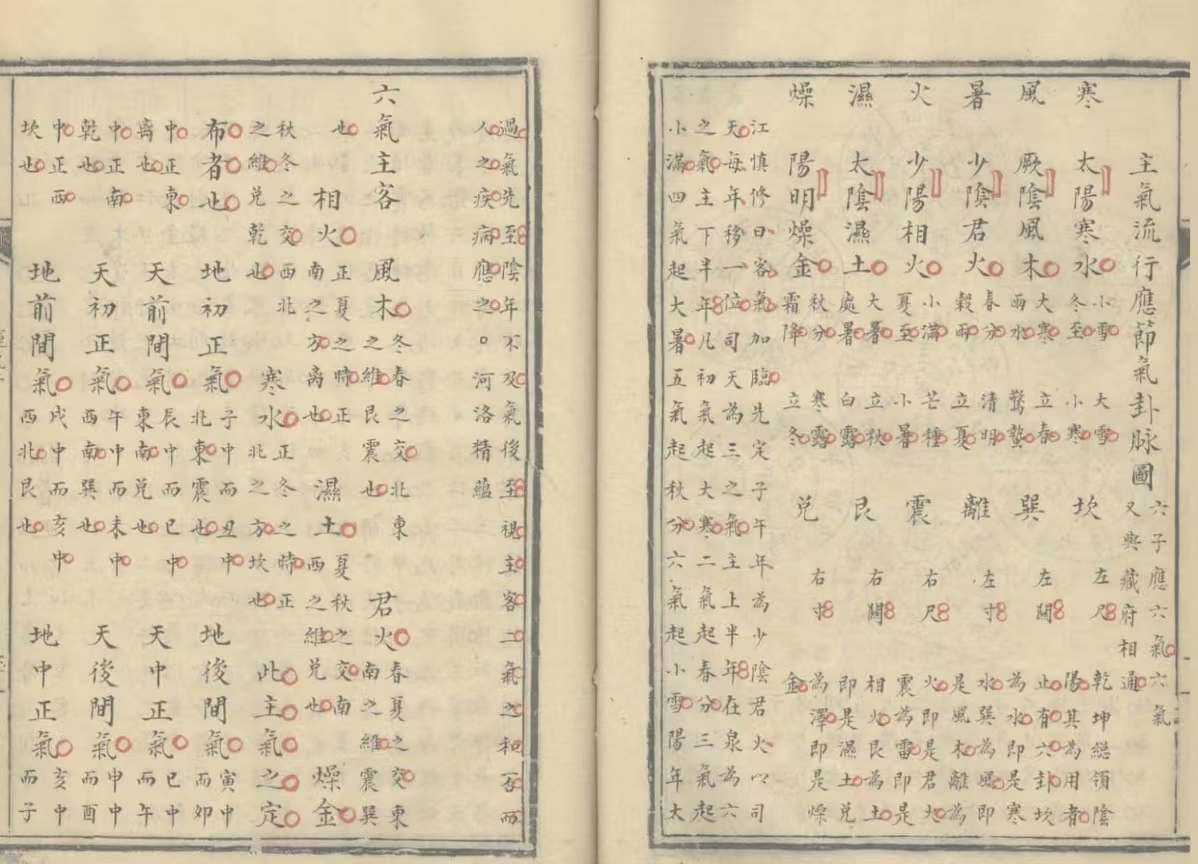 主氣流行應節氣卦脉圖 六子應六氣六氣又與藏府相通
寒 太陽寒水 小雪 大雪 冬至 小寒 坎 左尺
風 厥陰風木 大寒 立春 雨水 驚蟄 巽 左關
暑 少陰君火 春分 清明 穀雨 立夏 離 左寸
火 少陽相火 小滿 芒種 夏至 小暑 震 右尺
濕 太陰濕土 大暑 立秋 處暑 白露 艮 右關
燥 陽明燥金 秋分 寒露 霜降 立冬 兌 右寸
乾坤總領陰
陽其為用者
止有六卦坎
為水即是寒
水巽為風即
是風木離為
火即是君火
震為雷即是
相火艮為土
即是濕土兌
為澤即是燥
金
江慎修曰客氣加臨先定子午年為少陰君火以司
天每年移一位司天為三之氣主上半年在泉為六
之氣主下半年凡初氣起大寒二氣起春分三氣起
小滿四氣起大暑五氣起秋分六氣起小雪陽年大
過氣先至陰年不及氣後至視主客二氣之和否而
人之疾病應之。河洛精蘊
六氣主客 風木 冬春之交北東之維艮震也 君火 春夏之交東南之維震巽
也 相火 正夏之時正南之方离也 濕土 夏秋之交南西之維兌也 燥金
秋冬之交西北之維兌乾也 寒水 正冬之時正北之方坎也 此主氣之定
布者也 地初正氣 子中而丑中北東震也 地後間氣 寅中而卯
中正東离也 天前間氣 辰中而巳中東南兌也 天中正氣 巳中而午
中正南乾也 天初正氣 午中而未中西南巽也 天後間氣 申中而酉
中正西坎也 地前間氣 戌中而亥中西北艮也 地中正氣 亥中而子